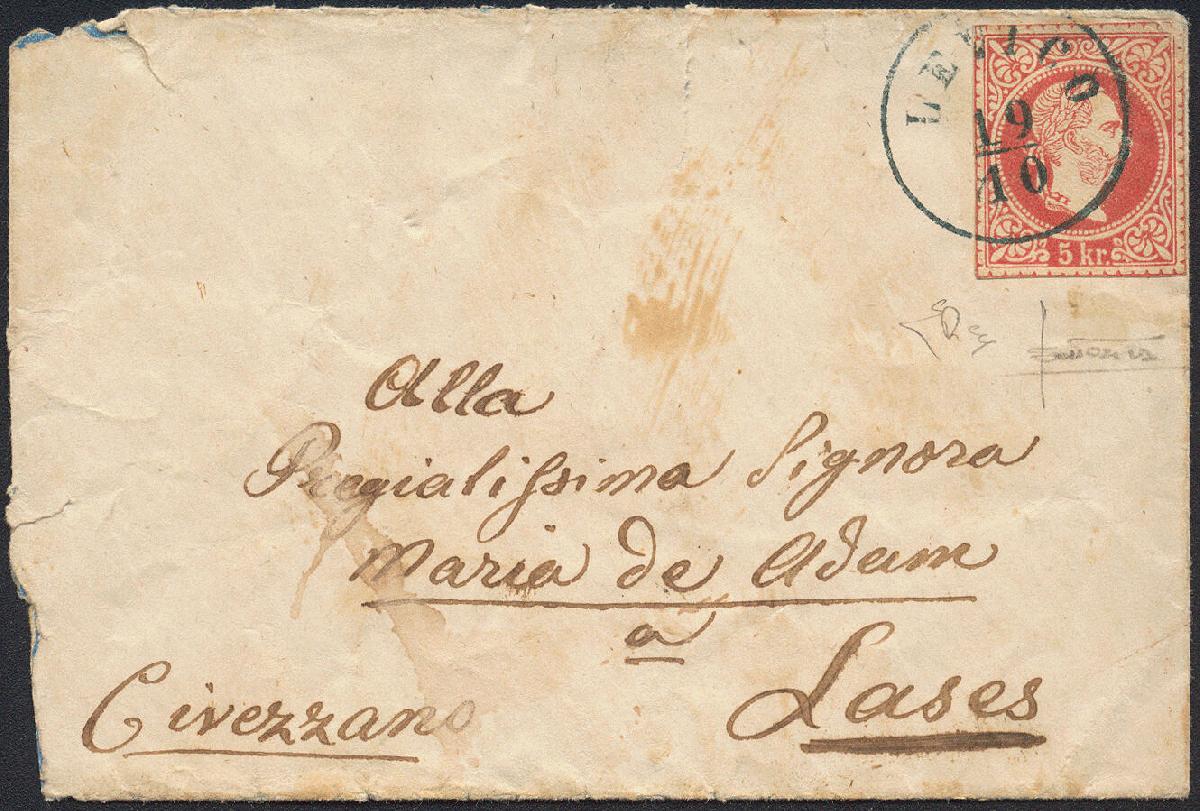 LEVICO
19
10
5 kr.
Alla
Pregialissima Signora
Maria de Adam
a
Lases
Civezzano